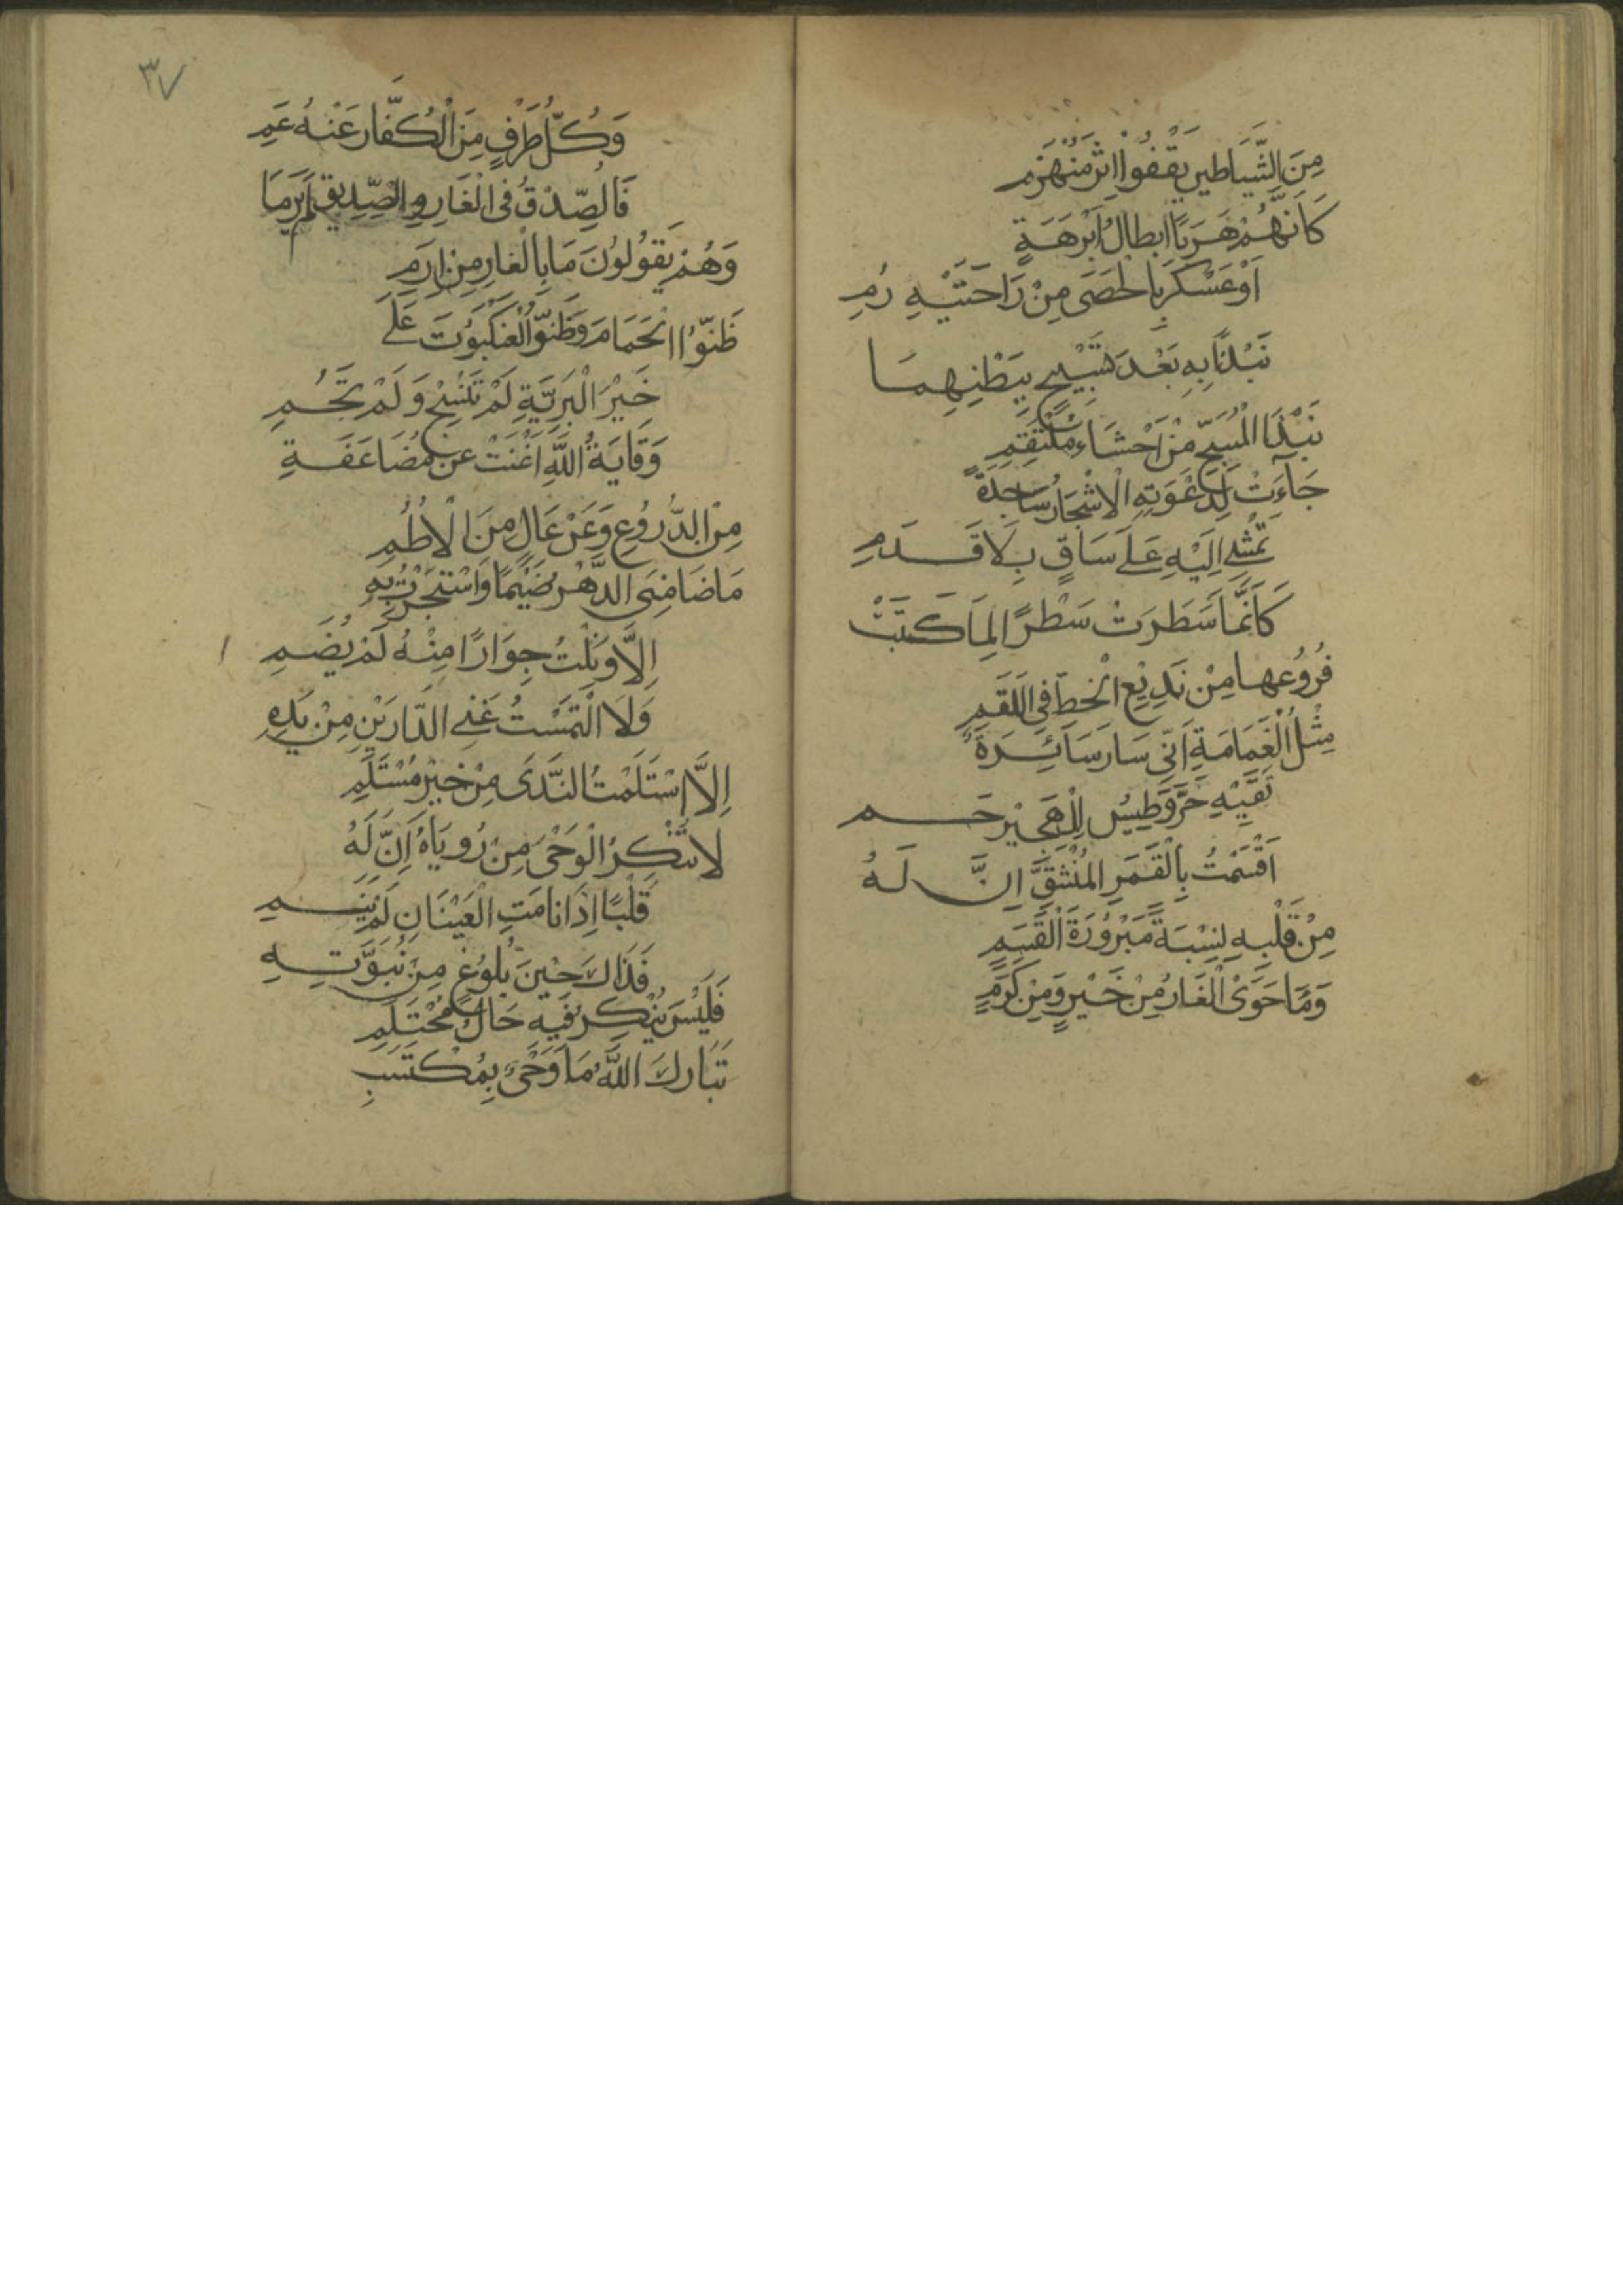 مِنَ الشَّيَاطِينِ يَقْفُوا اِثْرَ مُنْهَزِمِ
كَاَنَّهُمْ هَرَبًا اَبْطَالُ اَبْرَهَةٍ
اَوْ عَسْكَرٍ بِالْحَصَى مِنْ رَاحَتَيْهِ رُمِ
نَبْذًا بِهِ بَعْدَ تَسْبِيْحٍ بِبَطْنِهِمَا
نَبْذَا الْمُسَبِّحِ مِنْ اَحْشَاءِ مُلْتَقِمِ
جَآءَتْ لِدَعْوَتِهِ الْاَشْجَارُ سَاجِدَةً
تَمْشِى اِلَيْهِ عَلَى سَاقٍ بِلَا قَدَمِ
كَاَنَّمَا سَطَرَتْ سَطْرًا لِمَا كَتَبَتْ
فُرُوْعُهَا مِنْ بَدِيْعِ الْخَطِّ فِى اللَّقَمِ
مِثْلُ الْغَمَامَةِ اَنّٰى سَارَ سَائِرَةً
تَقِيْهِ حَرَّ وَطِيْسٍ لِلْهَجِيْرِ حَمِ
اَقْسَمْتُ بِالْقَمَرِ الْمُنْشَقِّ اِنَّ لَهُ
مِنْ قَلْبِهِ نِسْبَةً مَبْرُوْرَةَ الْقَسَمِ
وَمَا حَوَى الْغَارُ مِنْ خَيْرٍ وَمِنْ كَرَمٍ
٣٧
وَكُلُّ طَرْفٍ مِنَ الْكُفَّارِ عَنْهُ عَمِ
فَالصِّدْقُ فِى الْغَارِ وَالصِّدِّيْقُ لَمْ يَرِمَا
وَهُمْ يَقُوْلُوْنَ مَا بِالْغَارِ مِنْ اِرَمِ
ظَنُّوْا الْحَمَامَ وَظَنُّوْا الْعَنْكَبُوْتَ عَلَى
خَيْرِ الْبَرِيَّةِ لَمْ تَنْسُجْ وَلَمْ تَحُمِ
وَقَايَةُ اللّٰهِ اَغْنَتْ عَنْ مُضَاعَفَةٍ
مِنَ الدُّرُوْعِ وَعَنْ عَالٍ مِنَ الْاُطُمِ
مَا ضَامَنِى الدَّهْرُ ضَيْمًا وَاسْتَجَرْتُ بِهِ
اِلَّا وَنِلْتُ جِوَارًا مِنْهُ لَمْ يُضَمِ
وَلَا الْتَمَسْتُ غِنَى الدَّارَيْنِ مِنْ يَدِهِ
اِلَّا اسْتَلَمْتُ النَّدَى مِنْ خَيْرِ مُسْتَلَمِ
لَا تُنْكِرُ الْوَحْىَ مِنْ رُوْيَاهُ اِنَّ لَهُ
قَلْبًا اِذَا نَامَتِ الْعَيْنَانِ لَمْ يَنَمِ
فَذَاكَ حِيْنَ بُلُوْغٍ مِنْ نُبُوَّتِهِ
فَلَيْسَ يُنْكَرُ فِيْهِ حَالُ مُحْتَلِمِ
تَبَارَكَ اللّٰهُ مَا وَحْىٌ بِمُكْتَسَبٍ